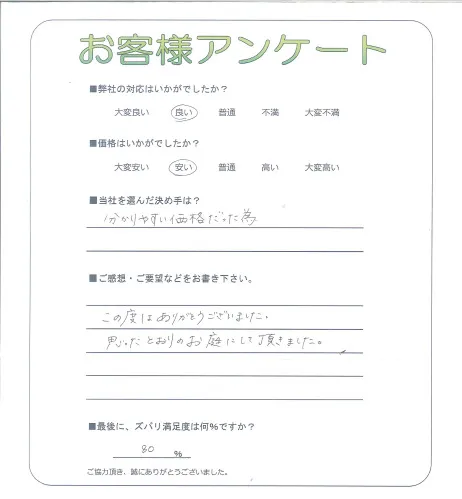 お客様アンケート
■弊社の対応はいかがでしたか？
大変良い 良い 普通 不満 大変不満
■価格はいかがでしたか？
大変安い 安い 普通 高い 大変高い
■当社を選んだ決め手は？
分かりやすい価格だった為
■ご感想・ご要望などをお書き下さい。
この度はありがとうございました。
思ったとおりのお庭にして頂きました。
■最後に、ズバリ満足度は何％ですか？
80 ％
ご協力頂き、誠にありがとうございました。